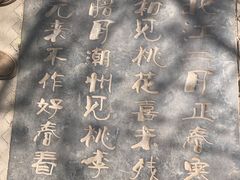 北江二月正春寒
初见桃花喜未残
腊月潮州见桃李
元来不作好春看